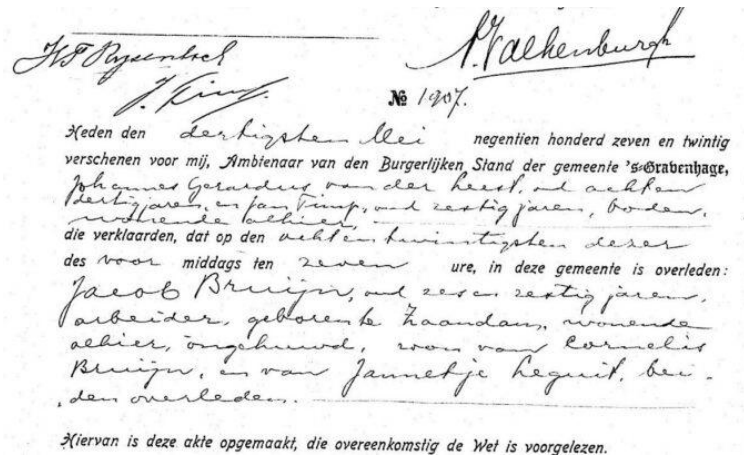 A. Valkenburgh
J. Timp.
№ 1907.
Heden den dertigsten Mei negentien honderd zeven en twintig
verschenen voor mij, Ambtenaar van den Burgerlijken Stand der gemeente 's-Gravenhage,
Johannes Gerardus van der Heest, oud achten
dertig jaren, en Jan Timp, oud zestig jaren, boden,
wonende alhier,
die verklaarden, dat op den achtentwintigsten dezer
des voor middags ten zeven ure, in deze gemeente is overleden:
Jacob Bruijn, oud zesenzestig jaren,
arbeider, geboren te Zaandam, wonende
alhier, ongehuwd, zoon van Cornelis
Bruijn, en van Jannetje Heguit, bei-
den overleden.
Hiervan is deze akte opgemaakt, die overeenkomstig de Wet is voorgelezen.